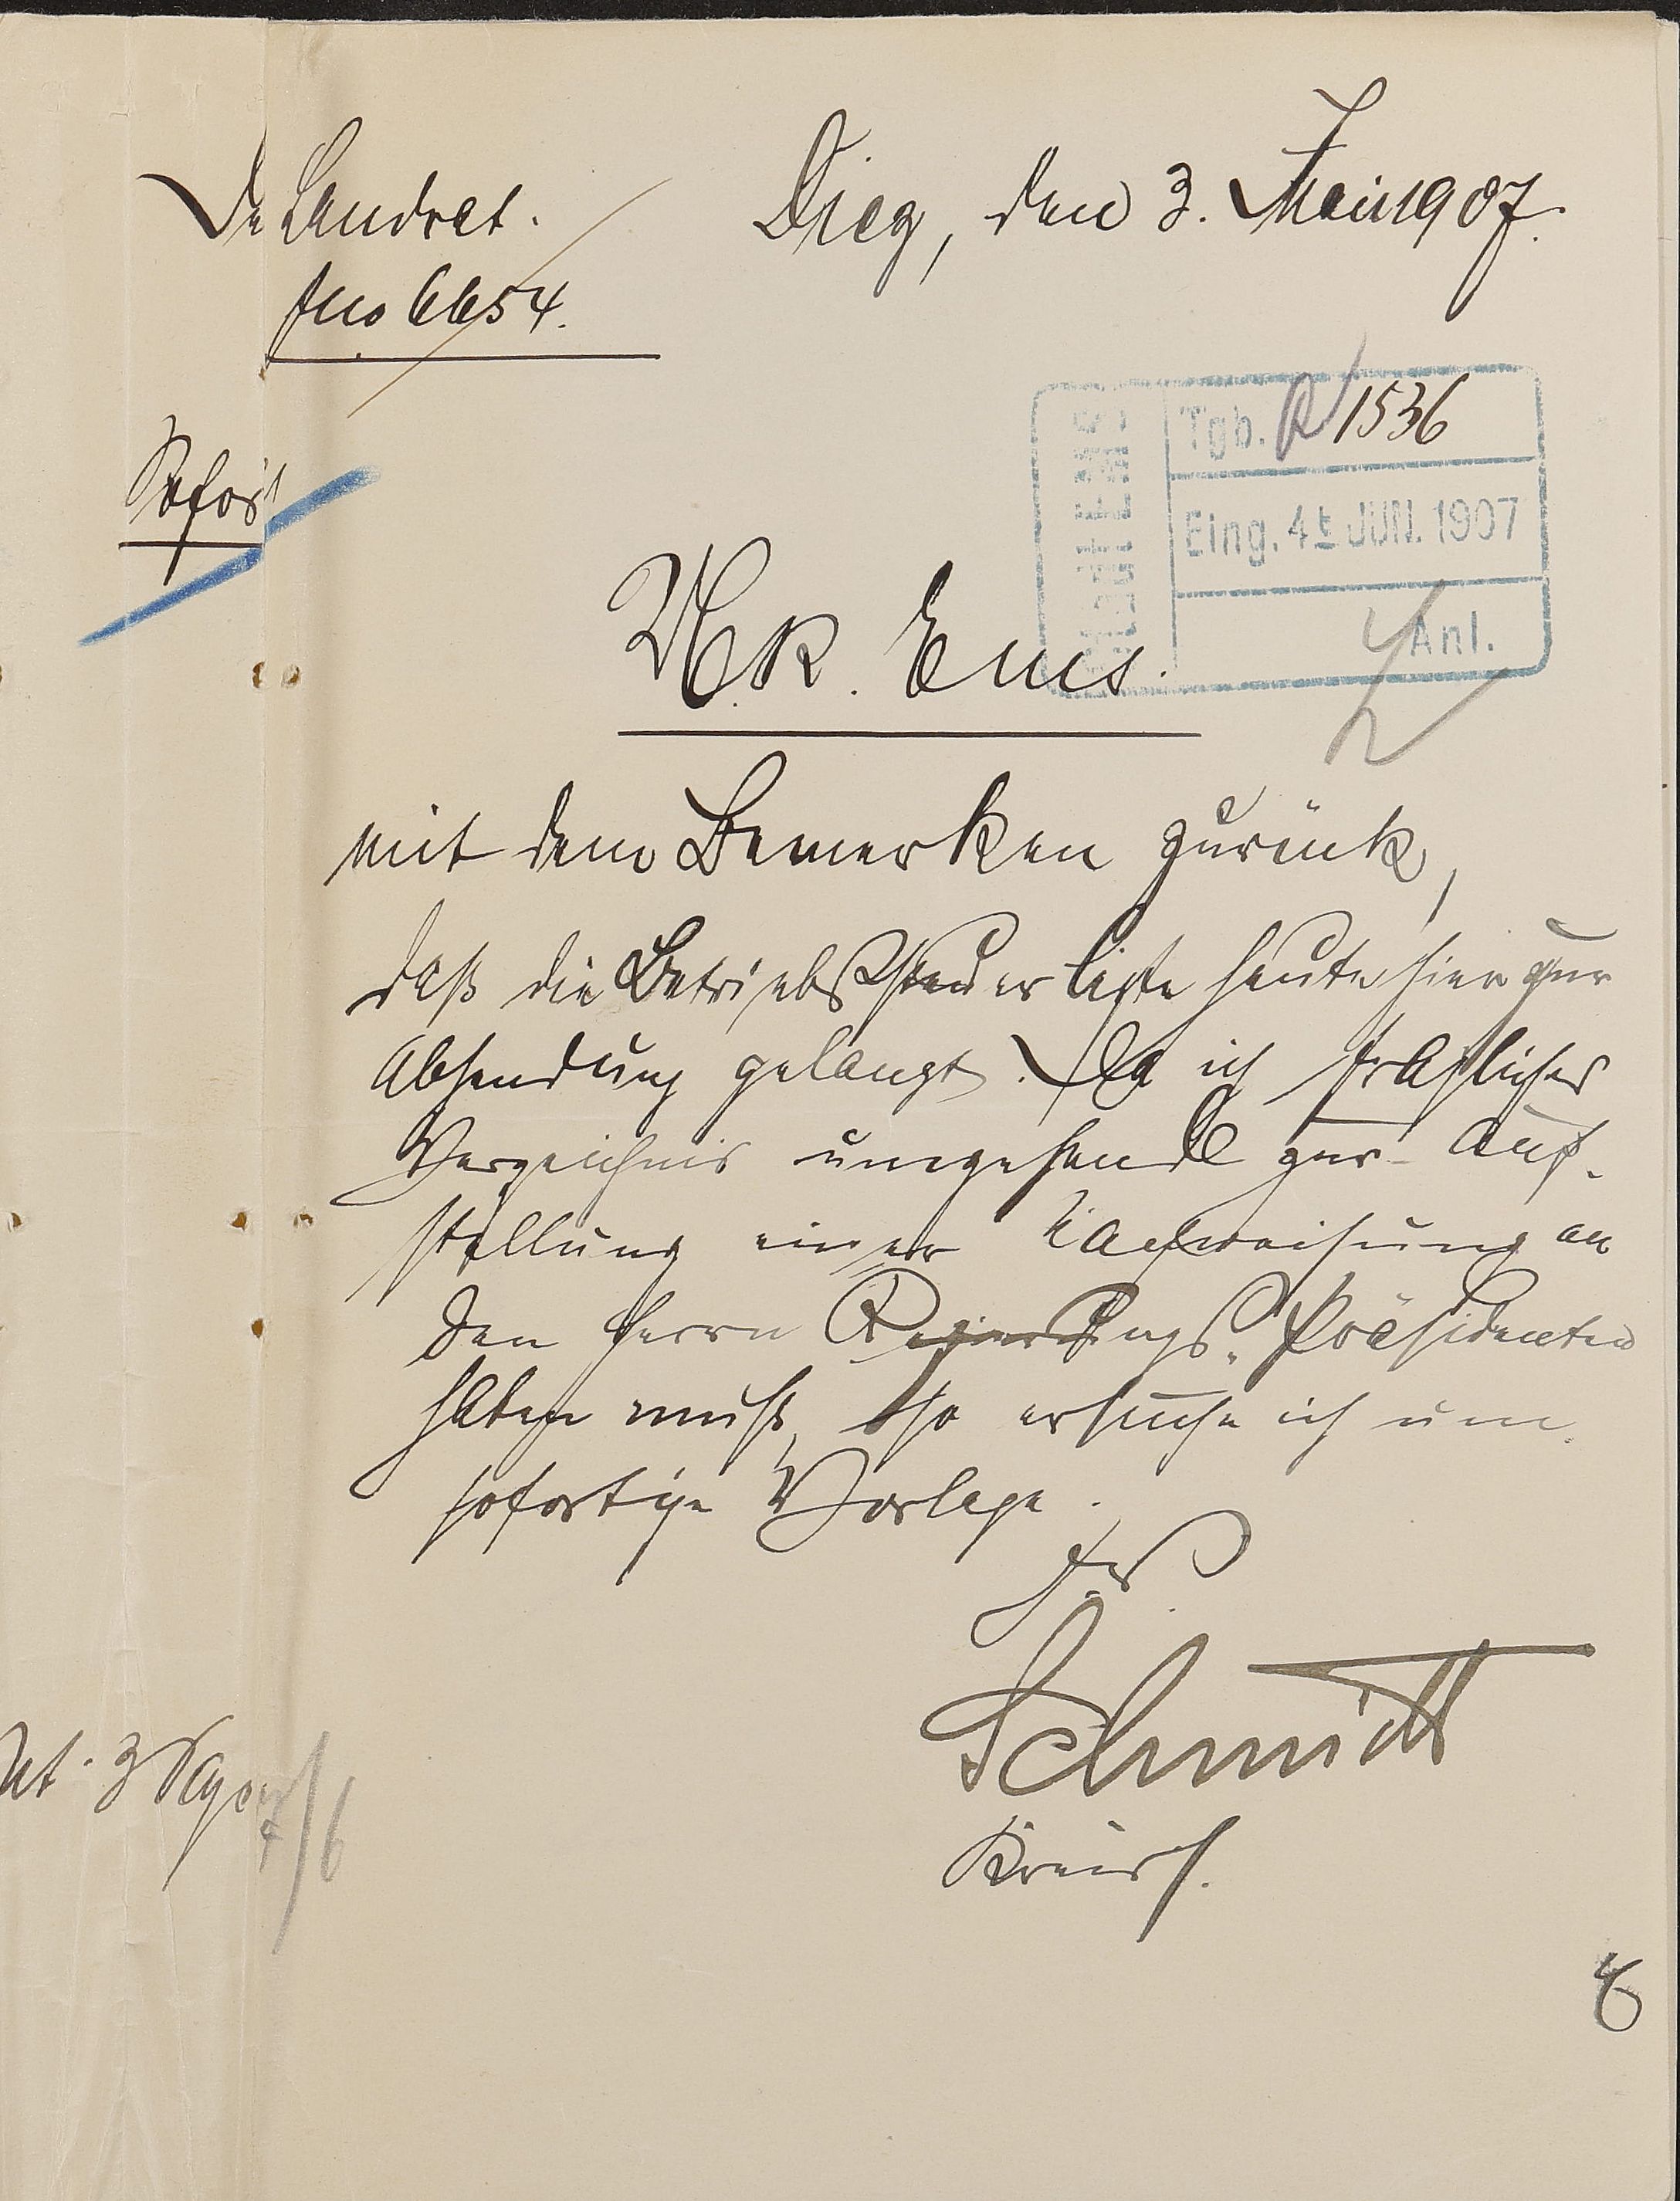 Der Landrat.
Diez, den 3. Juni 1907.
J. No 6654.
Tgb. R 1536
Eing. 4t JUN. 1907
Anl.
Sofort
M. R. Ems.
mit dem Bemerken zurück,
daß die Betriebssteuerliste heute hier zur
Absendung gelangt. Da ich fragliches
Verzeichnis umgehend zur Auf-
stellung einer Nachweisung an
den Herrn Regierungs-Präsidenten
haben muß, so ersuche ich um
sofortige Vorlage.
J. V.
Schmidt
Kreis.
3 Tage
4/6
8